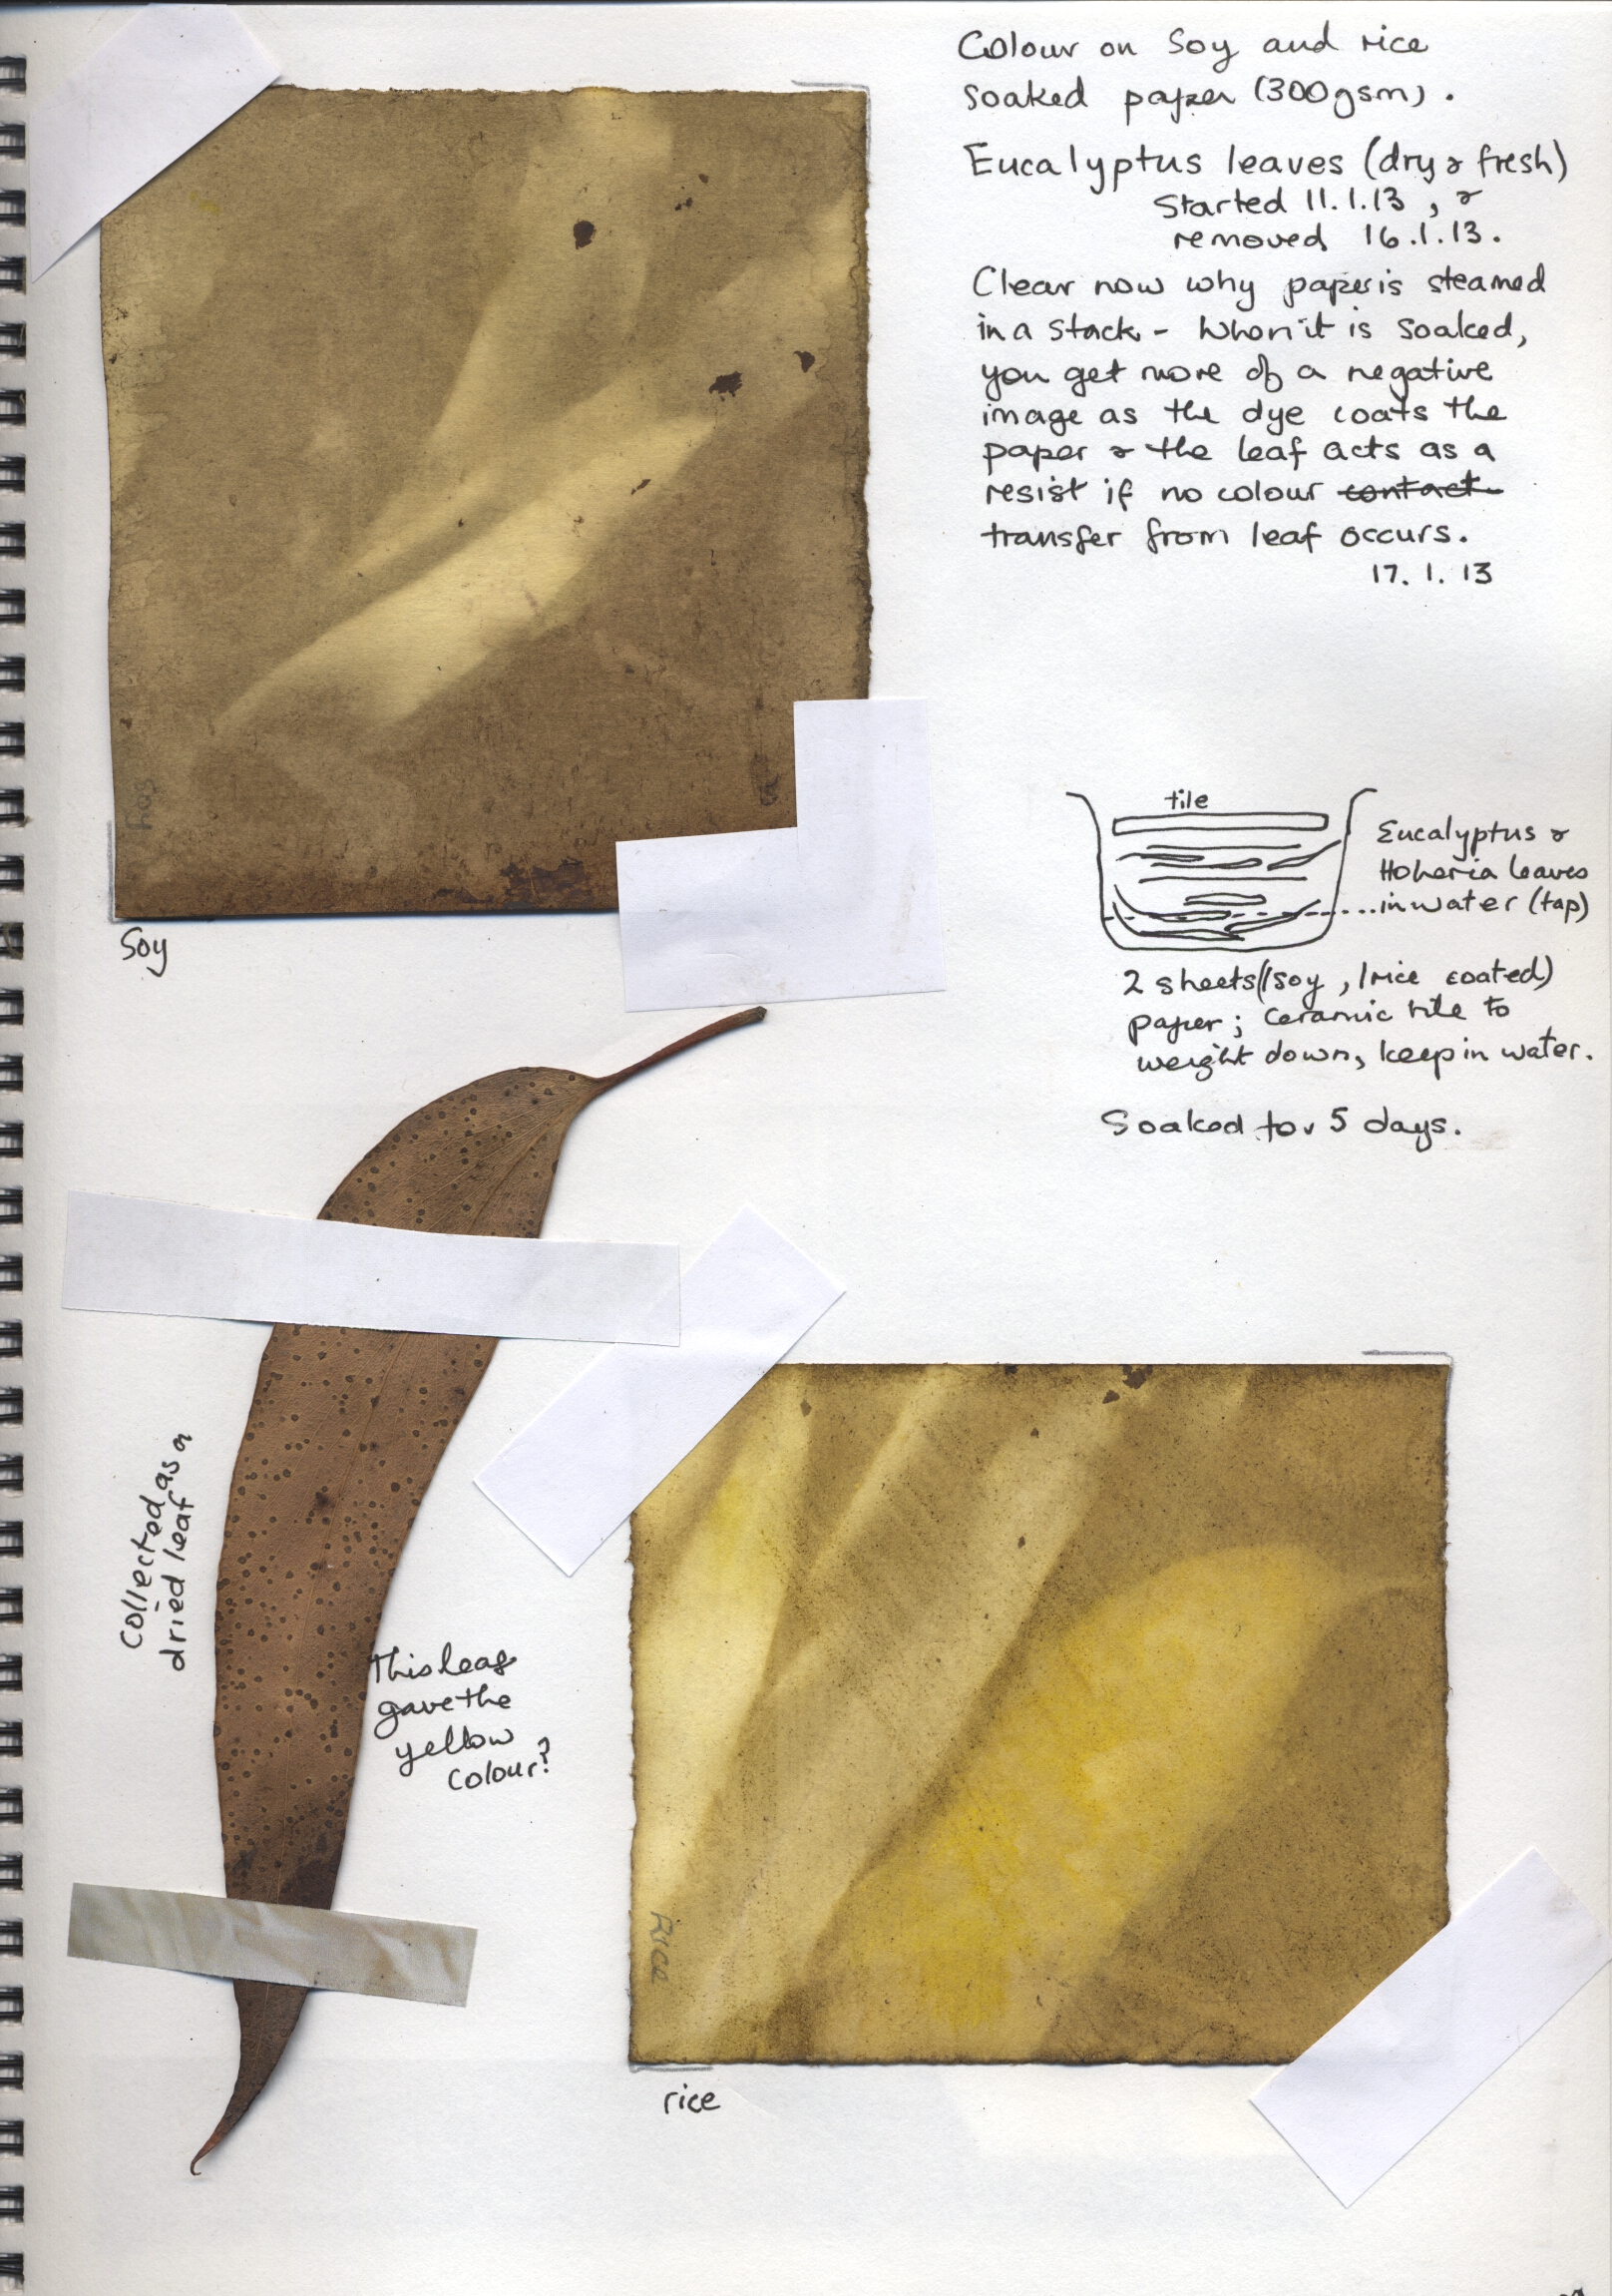 Colour on Soy and rice
soaked paper (300gsm).
Eucalyptus leaves (dry & fresh)
Started 11.1.13, &
removed 16.1.13.
Clear now why paper is steamed
in a stack - when it is soaked,
you get more of a negative
image as the dye coats the
paper & the leaf acts as a
resist if no colour contact
transfer from leaf occurs.
17.1.13
soy
Soy
tile
Eucalyptus &
Hoheria leaves
in water (tap)
2 sheets (1 soy, 1 rice coated)
paper; ceramic tile to
weight down, keep in water.
Soaked for 5 days.
Collected as a
dried leaf
This leaf
gave the
yellow
colour?
Rice
rice